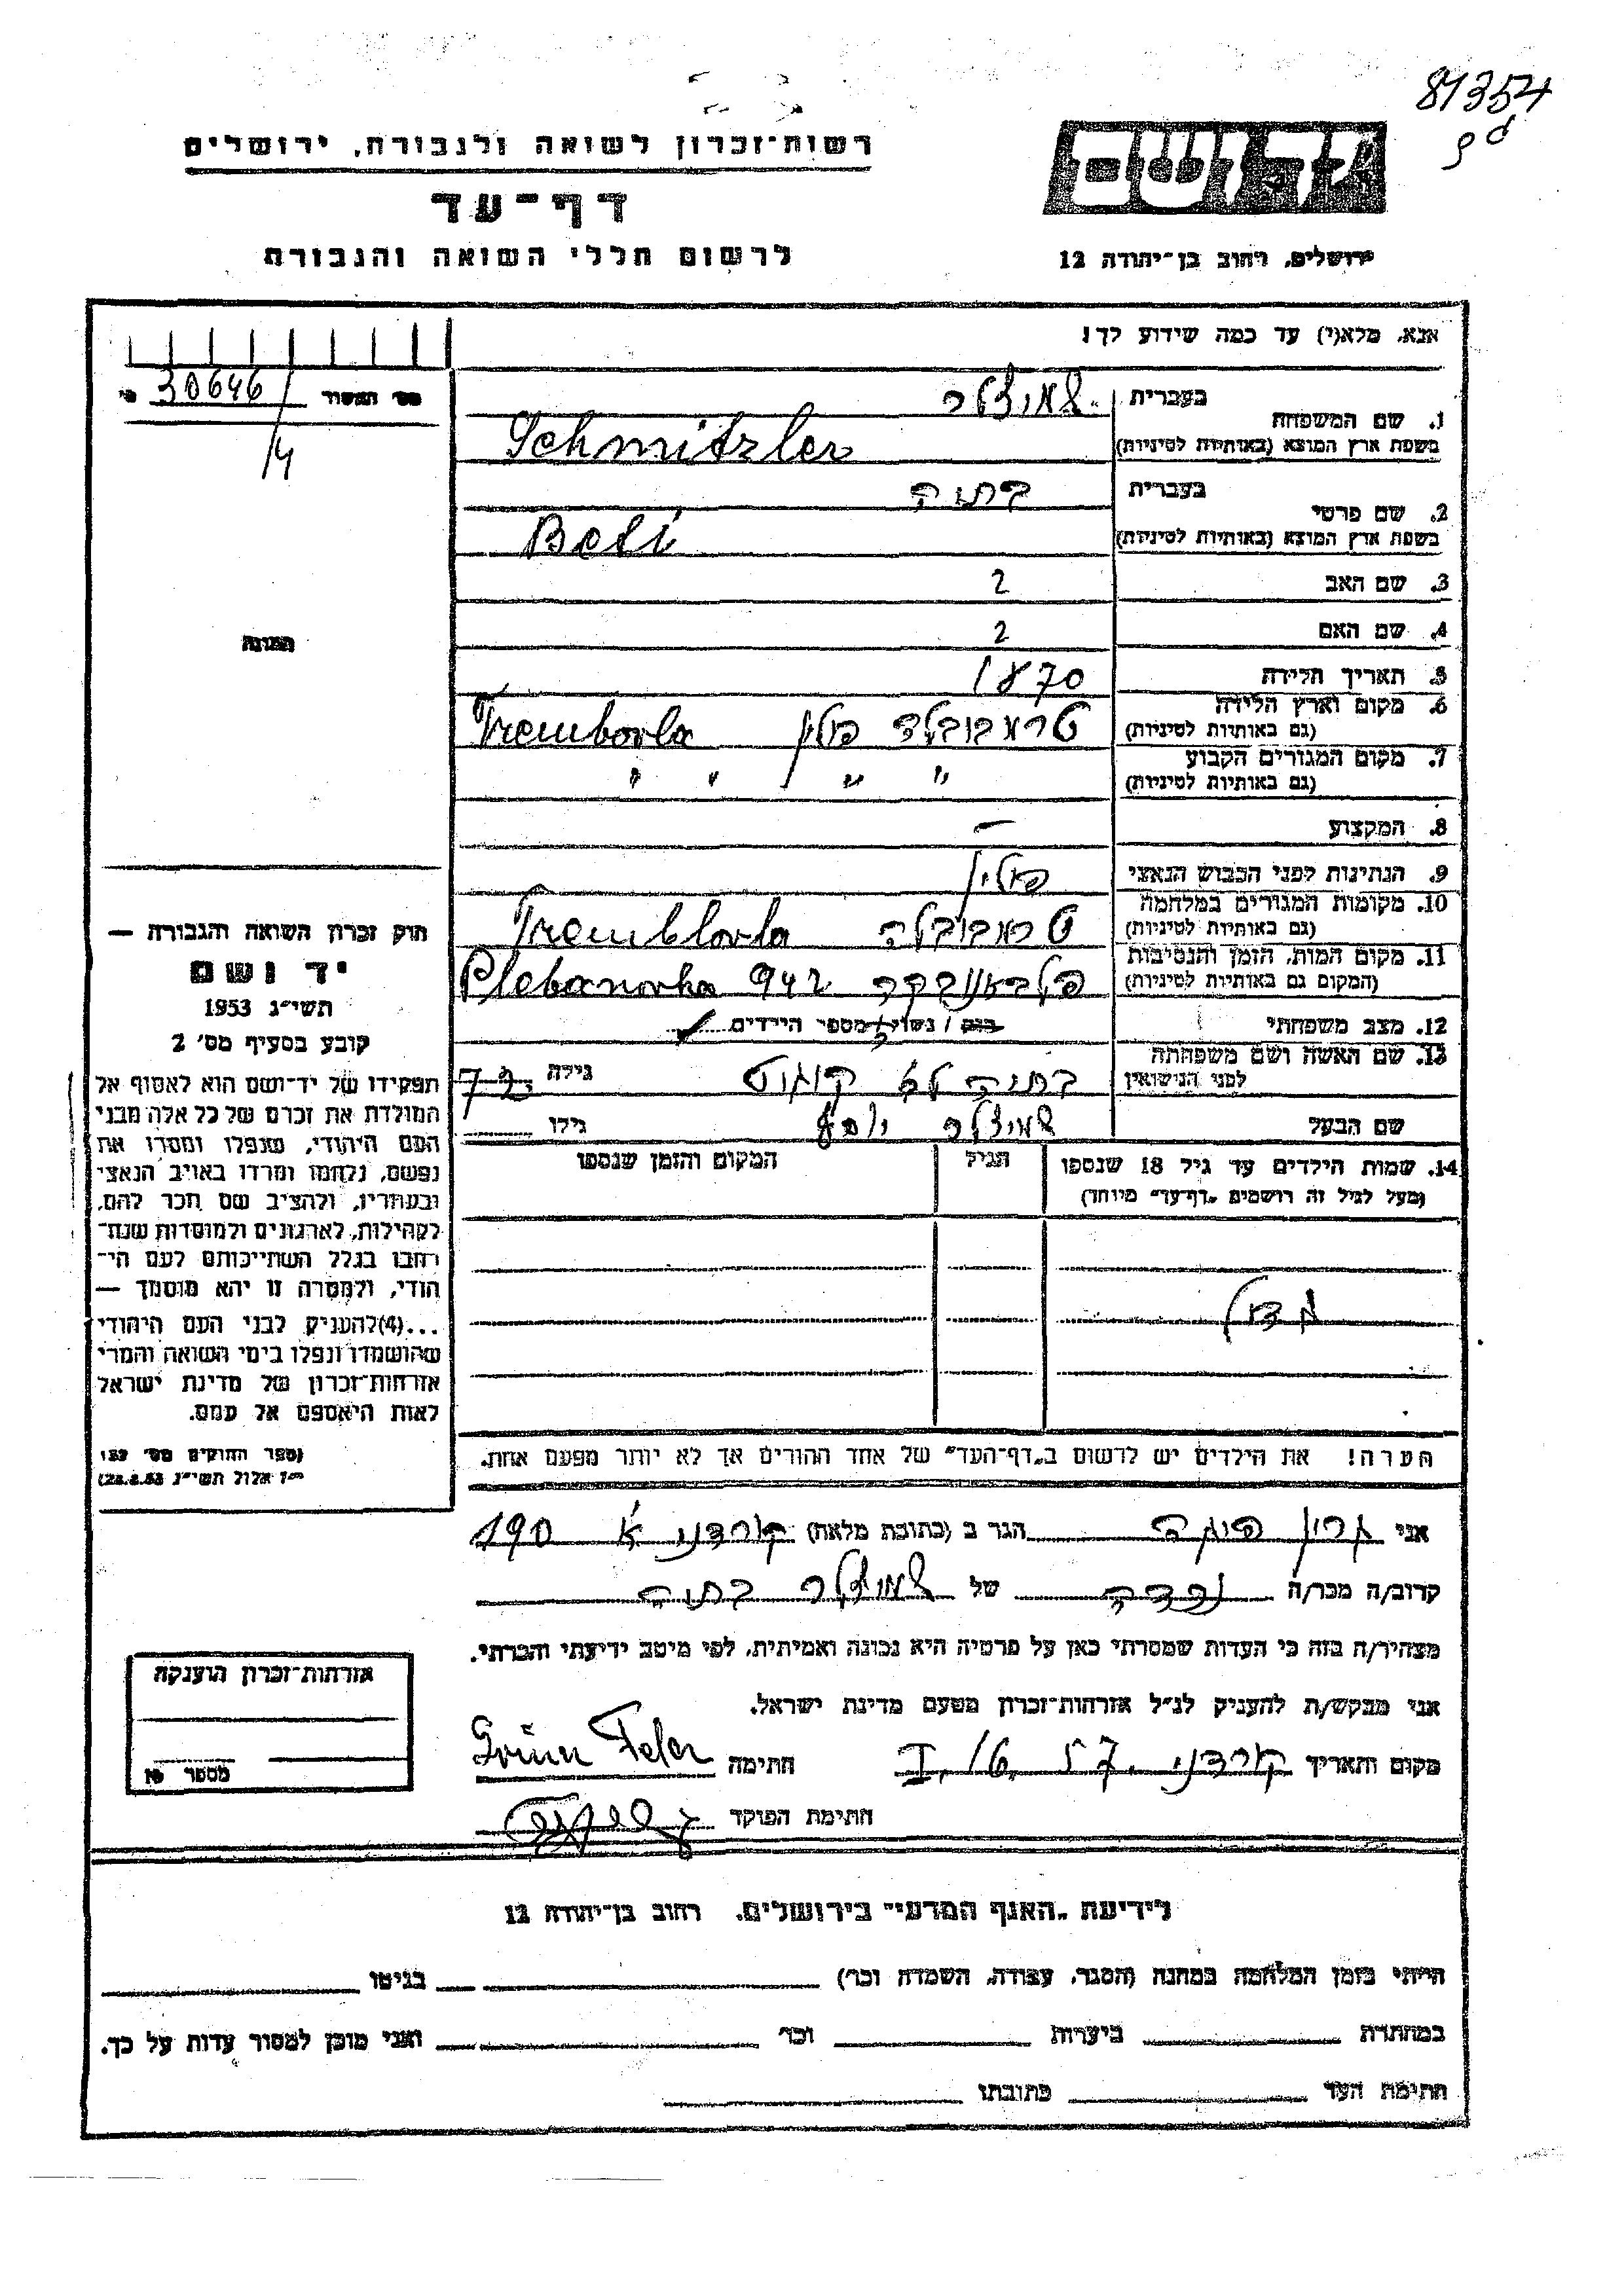 81354
רשות־זכרון לשואה ולגבורה, ירושלים
דף־עד
לרשום חללי השואה והגבורה
ירושלים, רחוב בן־יהודה 12
אנא, מלא(י) עד כמה שידוע לך!
30646/
14
1. שם המשפחה
בעברית שמיצלר
בשפת ארץ המוצא (באותיות לטיניות) Schmitzler
2. שם פרטי
בעברית בתיה
בשפת ארץ המוצא (באותיות לטיניות) Beti
3. שם האב ?
4. שם האם ?
5. תאריך הלידה 1870
6. מקום וארץ הלידה
(גם באותיות לטיניות) טרמבובלה פולין Trembovla
7. מקום המגורים הקבוע
(גם באותיות לטיניות) " " " "
8. המקצוע —
9. הנתינות לפני הכבוש הנאצי פולין
10. מקומות המגורים במלחמה
(גם באותיות לטיניות) טרמבובלה Tremblovla
11. מקום המות, הזמן והנסיבות
(המקום גם באותיות לטיניות) פלבאנובקה 942 Plebanovka
12. מצב משפחתי רווק / נשוי / מספר הילדים
13. שם האשה ושם משפחתה
לפני הנישואין בתיה גילה 72
שם הבעל שמיצלר יוסף גילו
14. שמות הילדים עד גיל 18 שנספו
(מעל לגיל זה רושמים "דף־עד" מיוחד)
הגיל
המקום והזמן שנספו
הערה! את הילדים יש לרשום ב"דף־העד" של אחד ההורים אך לא יותר מפעם אחת.
התמונה
חוק זכרון השואה והגבורה —
יד ושם
תשי"ג 1953
קובע בסעיף מס' 2
תפקידו של יד־ושם הוא לאסוף אל
המולדת את זכרם של כל אלה מבני
העם היהודי, שנפלו ומסרו את
נפשם, נלחמו ומרדו באויב הנאצי
ובעוזריו, ולהציב שם וזכר להם,
לקהילות, לארגונים ולמוסדות שנח־
רבו בגלל השתייכותם לעם הי־
הודי, ולמטרה זו יהא מוסמך —
...(4)להעניק לבני העם היהודי
שהושמדו ונפלו בימי השואה והמרי
אזרחות־זכרון של מדינת ישראל
לאות היאספם אל עמם.
(ספר החוקים מס' 132
י"ז אלול תשי"ג 28.8.53)
אני גרין פייגה הגר ב (כתובת מלאה) קורדני א' 190
קרוב/ה מכר/ה נכדה של שמיצלר בתיה
מצהיר/ה בזה כי העדות שמסרתי כאן על פרטיה היא נכונה ואמיתית, לפי מיטב ידיעתי והכרתי.
אני מבקש/ת להעניק לנ"ל אזרחות־זכרון מטעם מדינת ישראל.
מקום ותאריך קורדני, 16.I.57 חתימה
חתימת הפוקד
אזרחות־זכרון הוענקה
מספר
לידיעת "האגף המדעי" בירושלים, רחוב בן־יהודה 12
הייתי בזמן המלחמה במחנה (הסגר, עבודה, השמדה וכו') בגיטו
במחתרת ביערות וכו' ואני מוכן למסור עדות על כך.
חתימת העד כתובתו